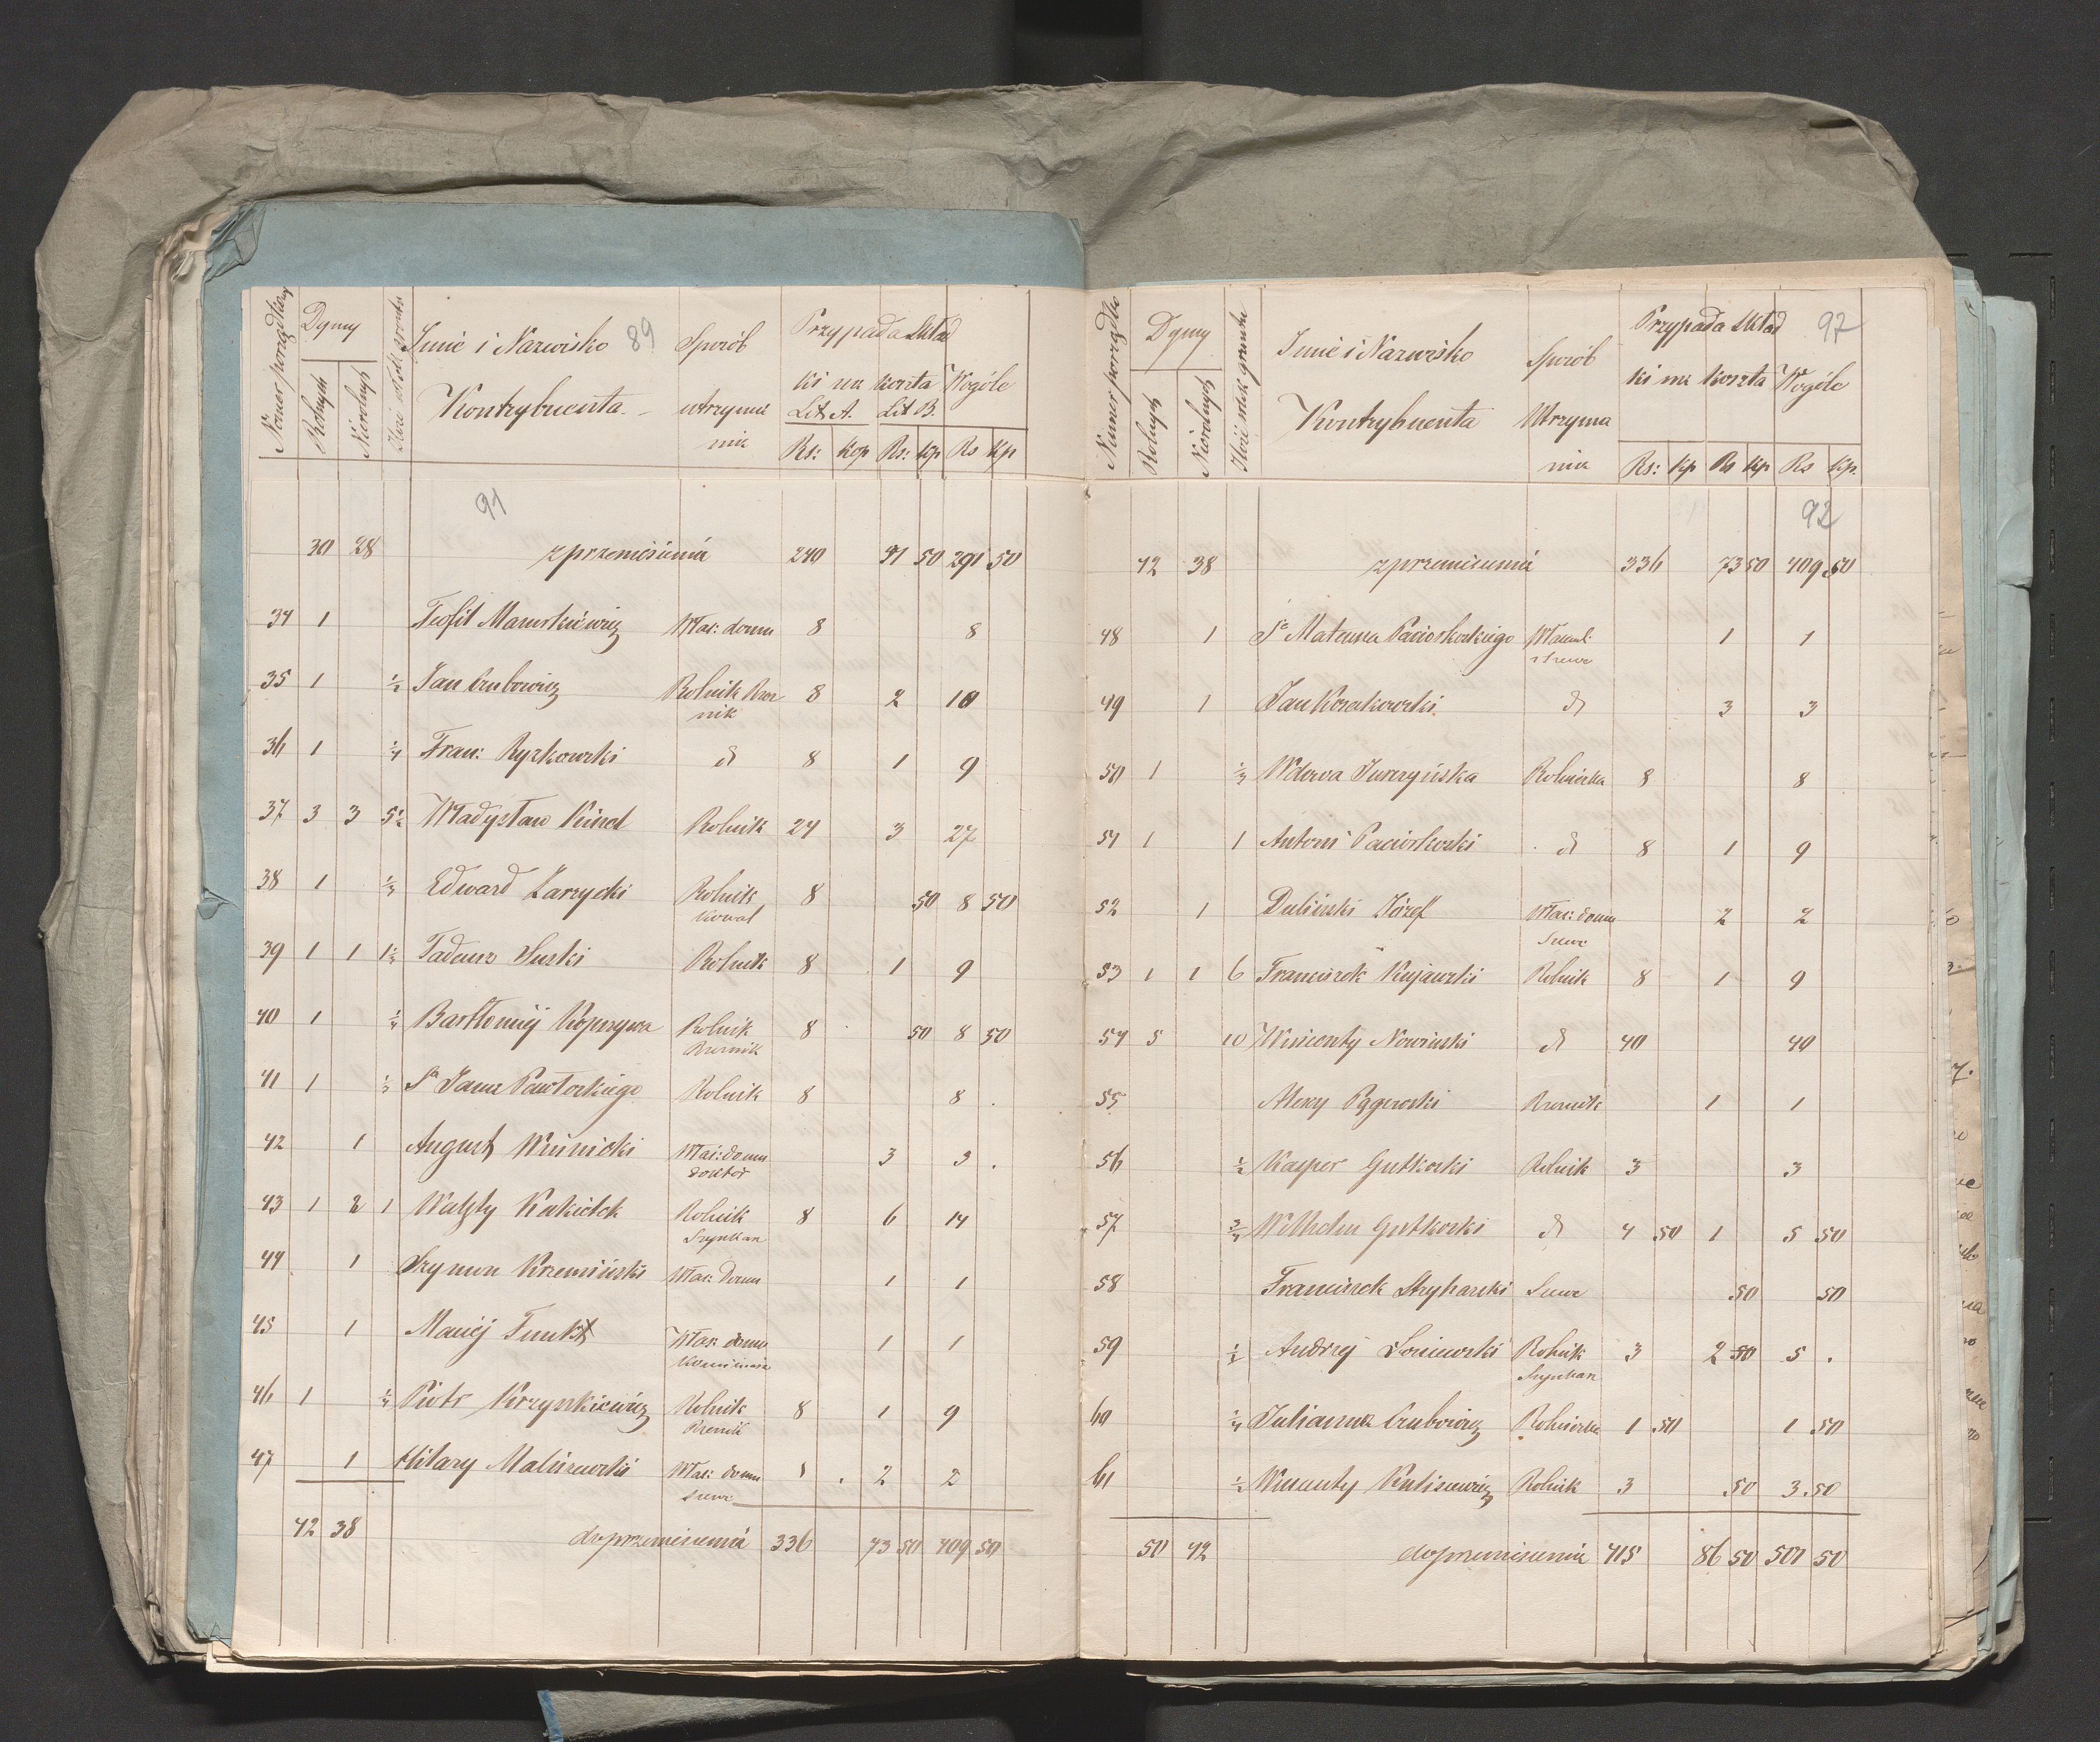 Numer porządkowy Dymy Rolnych Nierolnych Ilość włók gruntu Imie i Nazwisko 89 Kontrybuenta Sposób utrzyma nia Przypada Skład ki na koszta Wogóle
Lit A. Lit B.
Rs: kop Rs: kp Rs kp
91
30 28 z przeniesienia 240 41 50 291 50
34 1 Teofil Mamrkiewicz Właś: domu 8 8
35 1 ½ Jan Czubowicz Rolnik Rzeź 8 2 10
nik
36 1 ¼ Fran: Ryszkowski d 8 1 9
37 3 3 5½ Władysław Kinel Rolnik 24 3 27
38 1 ½ Edward Zarzycki Rolnik 8 50 8 50
Kowal
39 1 1 1½ Tadeusz Suski Rolnik 8 1 9
40 1 ¼ Bartłomiej Kopczywa Rolnik 8 50 8 50
Rzeźnik
41 1 ½ Sa Jana Pawłoskiego Rolnik 8 8
42 1 August Wiśnicki Właś: domu 3 3
doktor
43 1 2 1 Walęty Kukiełek Rolnik 8 6 14
Szynkarz
44 1 Szymon Krzemiński Właś: Domu 1 1
45 1 Maciej Funkt Właś: domu 1 1
Kominiarz
46 1 ¼ Piotr Krzynkiewicz Rolnik 8 1 9
Rzeźnik
47 1 Hilary Maliszewski Właś: domu 2 2
szewc
42 38 do przeniesienia 336 73 50 409 50
Numer porządko Dymy Rolnych Nierolnych Ilość włók gruntu Imie i Nazwisko Kontrybuenta Sposób Utrzyma nia Przypada Skład 97
ki na koszta Wogóle
Rs: kp Rs kp Rs kp.
92
42 38 z przeniesienia 336 73 50 409 50
48 1 Sa Mateusza Paciorkoskiego 1 1
szewc
49 1 Jan Kozakowski d 3 3
50 1 ½ Wdowa Jurczyńska Rolniczka 8 8
51 1 1 Antoni Paciorkoski d 8 1 9
52 1 Duliński Józef Właś: domu 2 2
Szewc
53 1 1 6 Franciszek Kujawski Rolnik 8 1 9
54 5 10 Wincenty Nowiński d 40 40
55 Alexy Rzeźnik 1 1
56 ½ Kasper Gutkoski Rolnik 3 3
57 ¾ Wilhelm Gutkoski d 4 50 1 5 50
58 Franciszek Stryharski Szewc 50 50
59 ½ Andrzej Soniewski Rolnik 3 2 50 5
Szynkarz
60 ¼ Julianna Czubowicz Rolniczka 1 50 1 50
61 ½ Wincenty Kuliszewicz Rolnik 3 50 3.50
50 42 do przeniesienia 415 86 50 501 50